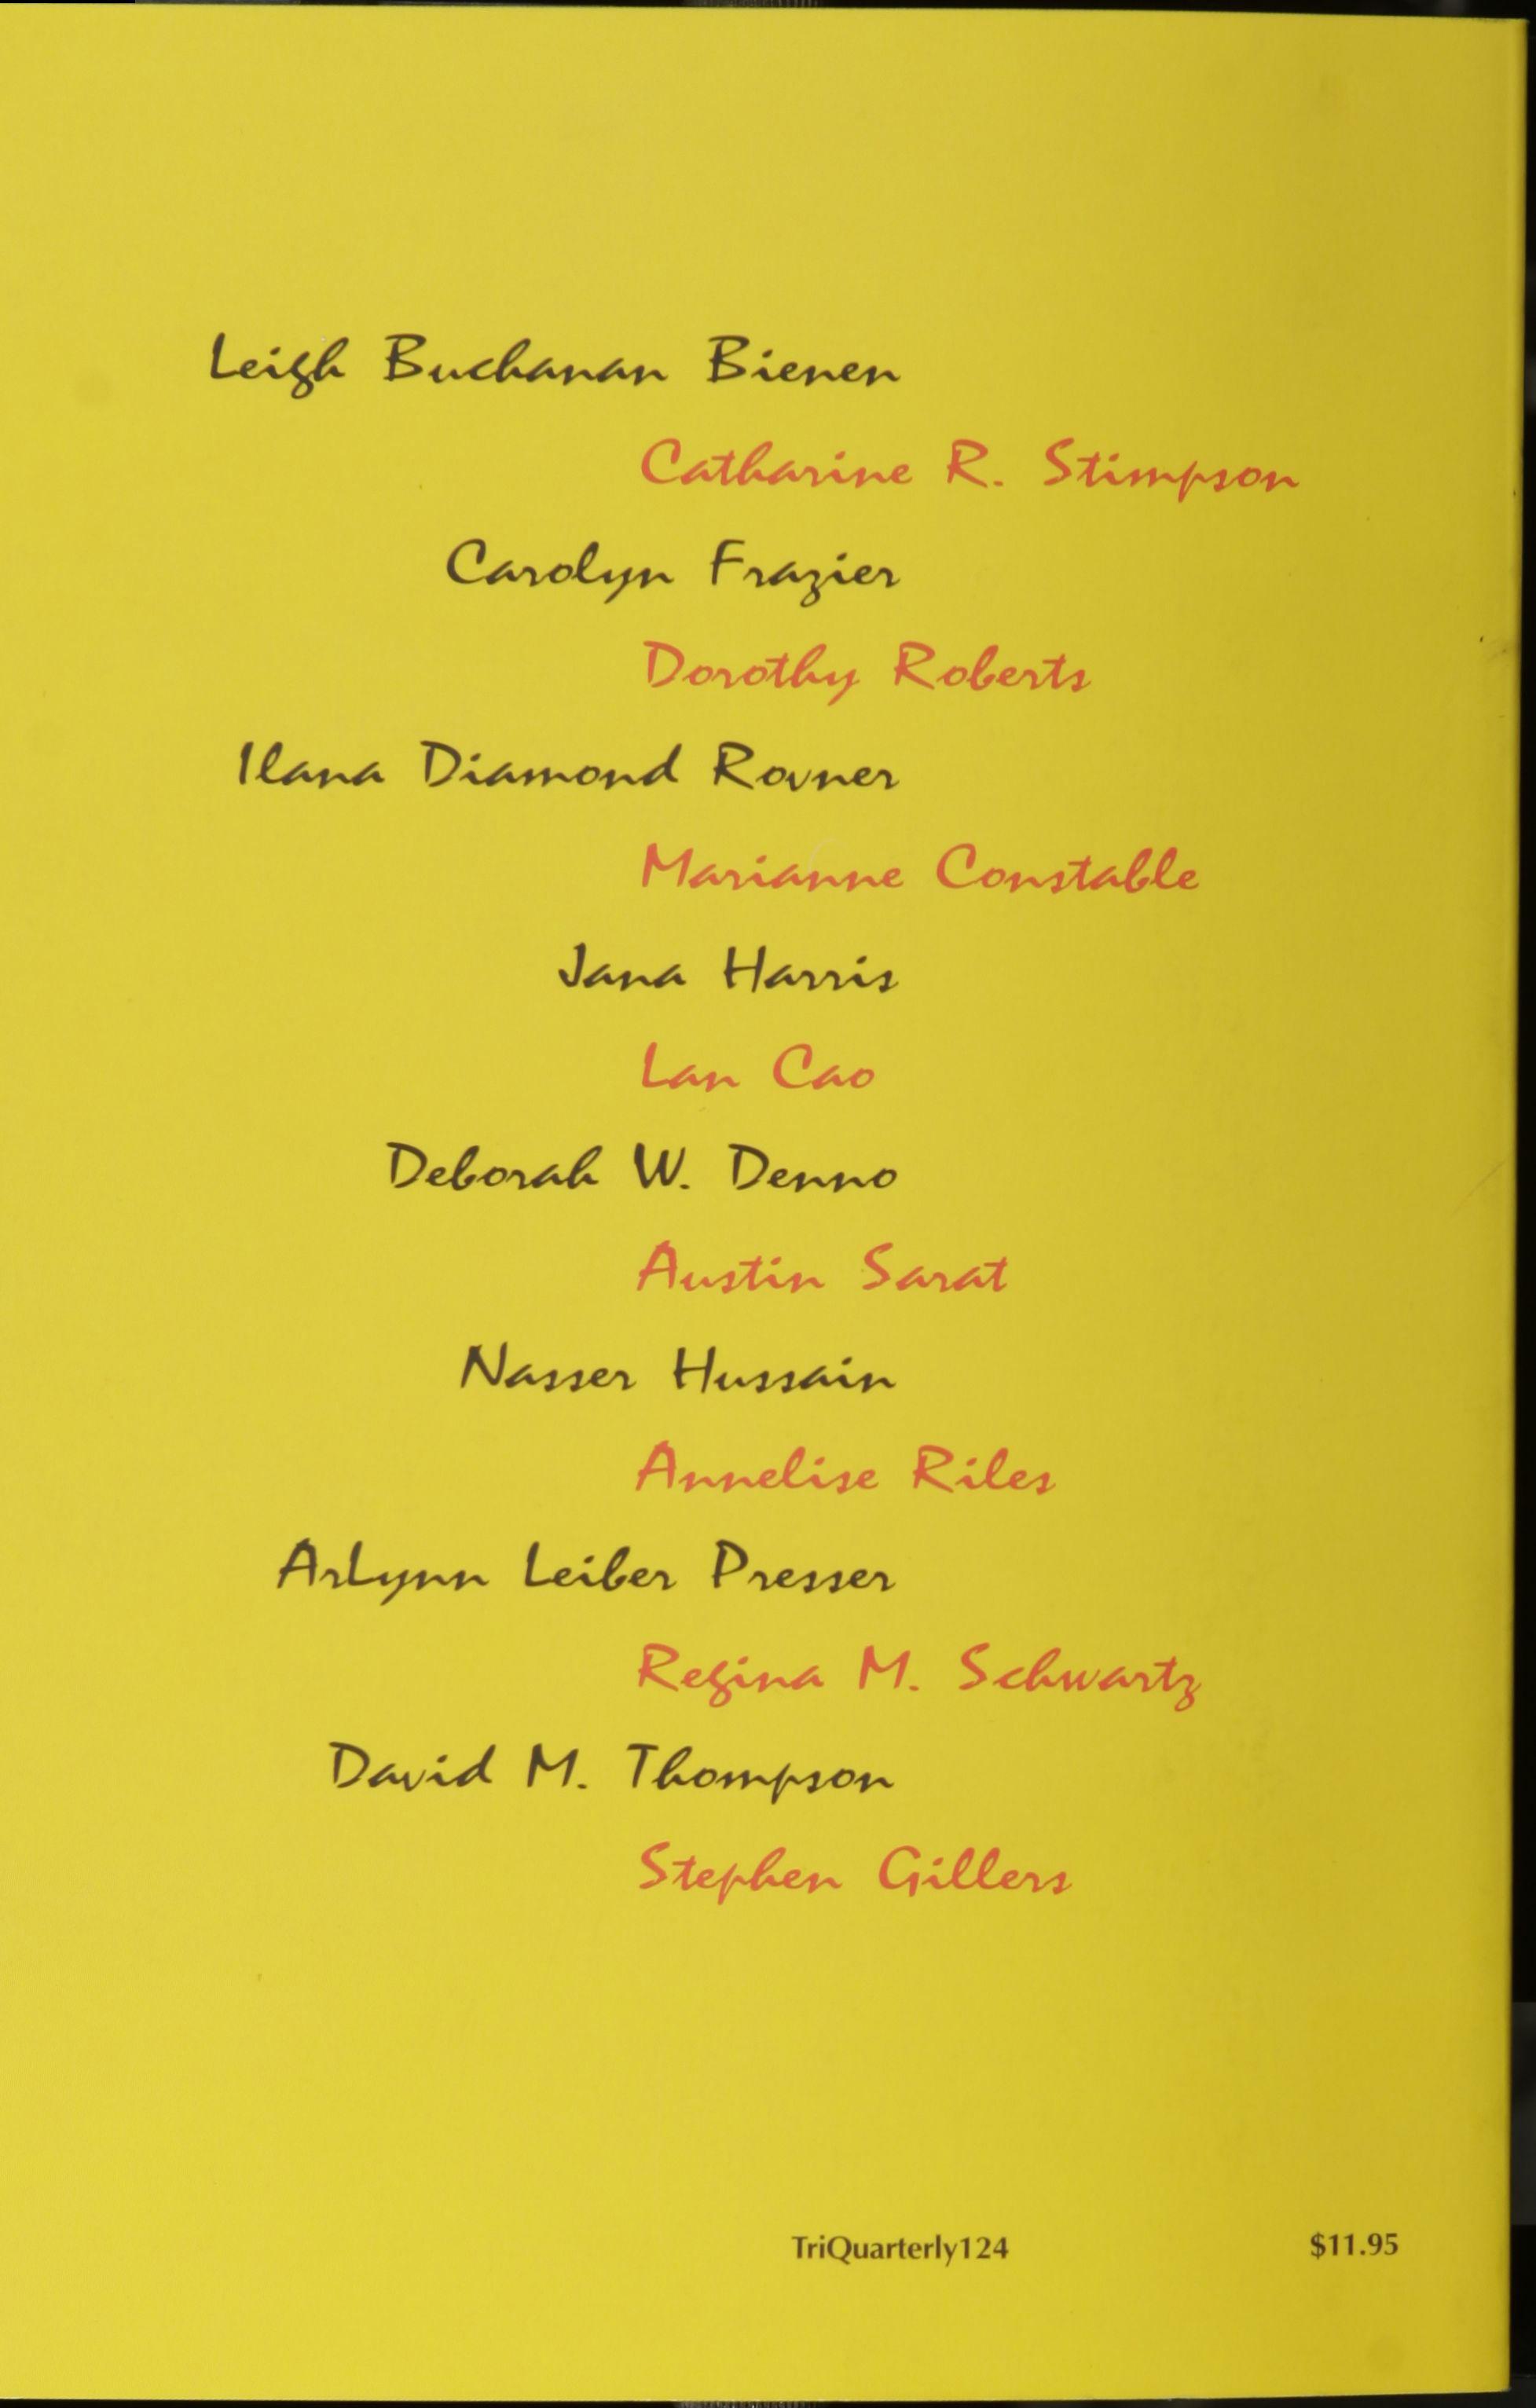 Leigh Buchanan Bienen
Catharine R. Stimpson
Carolyn Frazier
Dorothy Roberts
Ilana Diamond Rovner
Marianne Constable
Jana Harris
Lan Cao
Deborah W. Denno
Austin Sarat
Nasser Hussain
Annelise Riles
ArLynn Leiber Presser
Regina M. Schwartz
David M. Thompson
Stephen Gillers
TriQuarterly124 $11.95